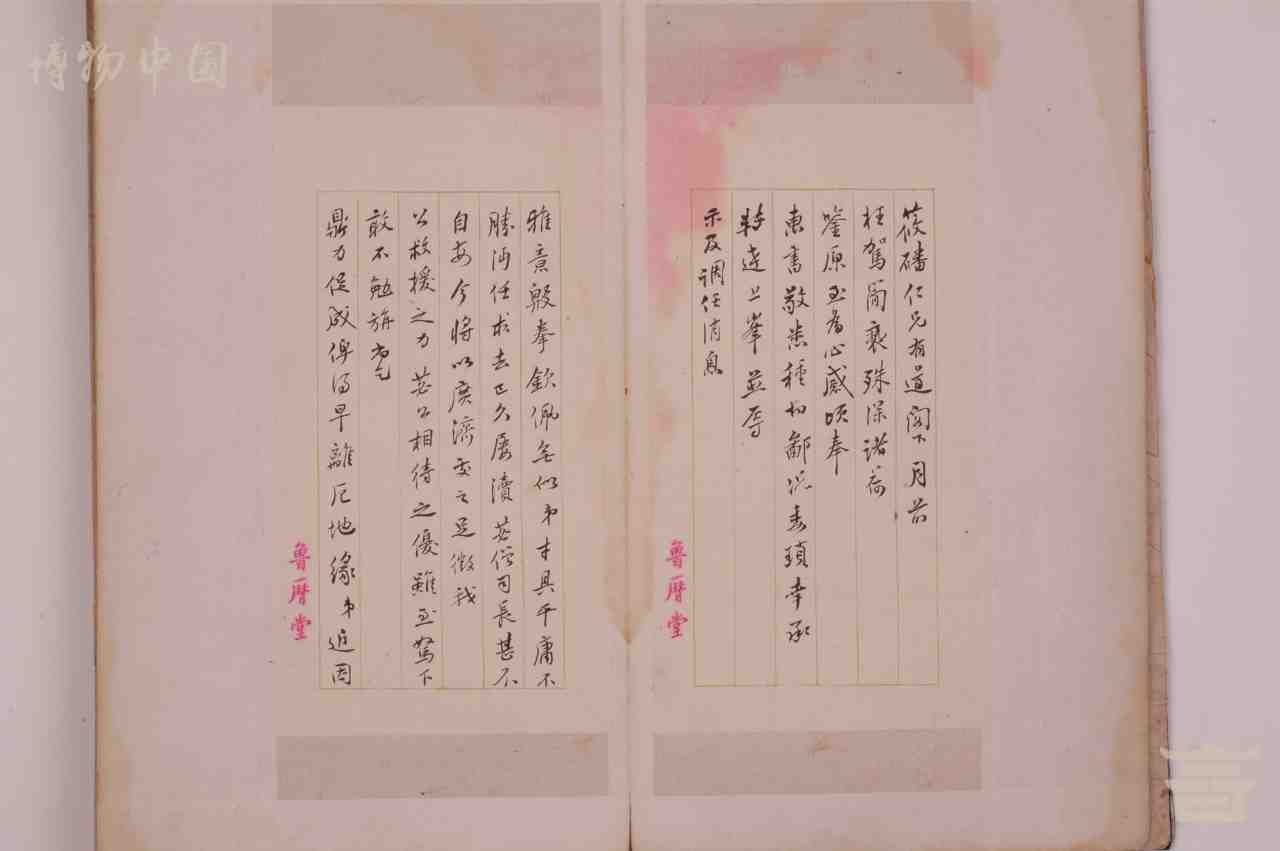 博物中国
筱磻仁兄有道阁下月前
枉驾简亵殊深诸荷
鉴原至为心感顷奉
惠书敬悉种切鄙况委琐幸承
转达上峯並辱
示及调任消息
鲁厝堂
雅意毅拳钦佩无似弟才具平庸不
胜河任求去已久屡渎 司长甚不
自安今将以广济 之足徵我
公救援之力 公相待之优虽至驽下
敢不勉旃
鼎力促成俾得早離厄地缘弟近因
鲁厝堂